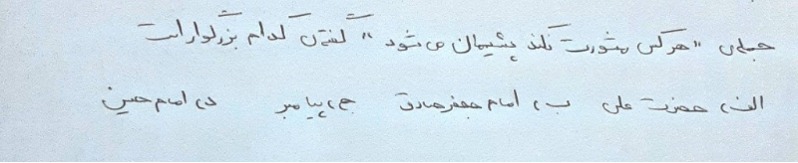 جمله‌ی "هرکس مشورت نکند پشیمان می‌شود" گفته‌ی کدام بزرگوار است
الف) حضرت علی ب) امام جعفر صادق ج) پیامبر د) امام حسین